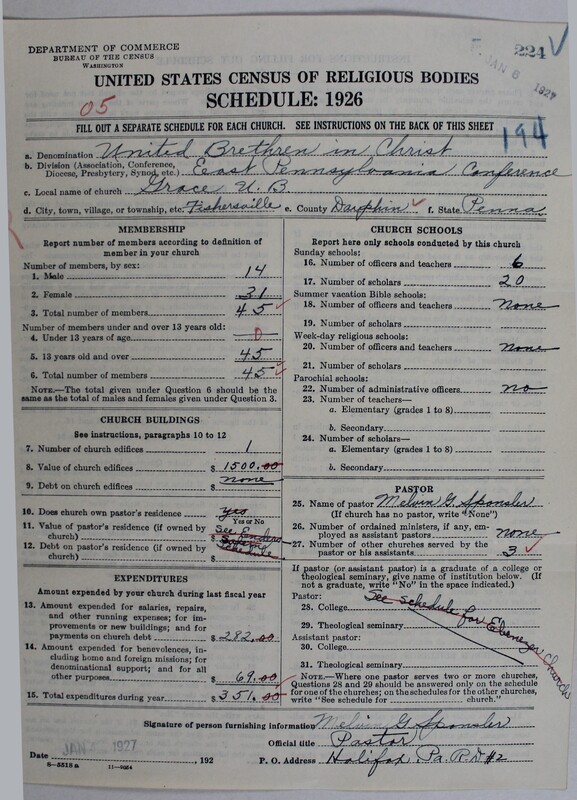 DEPARTMENT OF COMMERCE
BUREAU OF THE CENSUS
WASHINGTON
224
JAN 8 1927
UNITED STATES CENSUS OF RELIGIOUS BODIES
SCHEDULE: 1926
05
FILL OUT A SEPARATE SCHEDULE FOR EACH CHURCH. SEE INSTRUCTIONS ON THE BACK OF THIS SHEET
194
a. Denomination United Brethren in Christ
b. Division (Association, Conference, Diocese, Presbytery, Synod, etc.) East Pennsylvania Conference
c. Local name of church Grace U. B
d. City, town, village, or township, etc. Fishersville e. County Dauphin f. State Penna
MEMBERSHIP
Report number of members according to definition of member in your church
Number of members, by sex:
1. Male 14
2. Female 31
3. Total number of members 45
Number of members under and over 13 years old:
4. Under 13 years of age 0
5. 13 years old and over 45
6. Total number of members 45
NOTE.—The total given under Question 6 should be the same as the total of males and females given under Question 3.
CHURCH BUILDINGS
See instructions, paragraphs 10 to 12
7. Number of church edifices 1
8. Value of church edifices $ 1500.00
9. Debt on church edifices $ none
10. Does church own pastor's residence yes
Yes or No
11. Value of pastor's residence (if owned by church) $ See
12. Debt on pastor's residence (if owned by church) $ schedule
EXPENDITURES
Amount expended by your church during last fiscal year
13. Amount expended for salaries, repairs, and other running expenses; for improvements or new buildings; and for payments on church debt $ 282.00
14. Amount expended for benevolences, including home and foreign missions; for denominational support; and for all other purposes $ 69.00
15. Total expenditures during year $ 351.00
CHURCH SCHOOLS
Report here only schools conducted by this church
Sunday schools:
16. Number of officers and teachers 6
17. Number of scholars 20
Summer vacation Bible schools:
18. Number of officers and teachers none
19. Number of scholars
Week-day religious schools:
20. Number of officers and teachers none
21. Number of scholars
Parochial schools:
22. Number of administrative officers no
23. Number of teachers—
a. Elementary (grades 1 to 8)
b. Secondary
24. Number of scholars—
a. Elementary (grades 1 to 8)
b. Secondary
PASTOR
25. Name of pastor Melvin G. Sponsler
(If church has no pastor, write "None")
26. Number of ordained ministers, if any, employed as assistant pastors none
27. Number of other churches served by the pastor or his assistants 3
If pastor (or assistant pastor) is a graduate of a college or theological seminary, give name of institution below. (If not a graduate, write "No" in the space indicated.)
Pastor:
28. College See schedule for Ebenezer Church
29. Theological seminary
Assistant pastor:
30. College
31. Theological seminary
NOTE.—Where one pastor serves two or more churches, Questions 28 and 29 should be answered only on the schedule for one of the churches; on the schedules for the other churches, write "See schedule for Church."
Signature of person furnishing information Melvin G. Sponsler
Official title Pastor
Date 1927, 192 P. O. Address Halifax Pa. R. D #2
8—5518a 11—9054